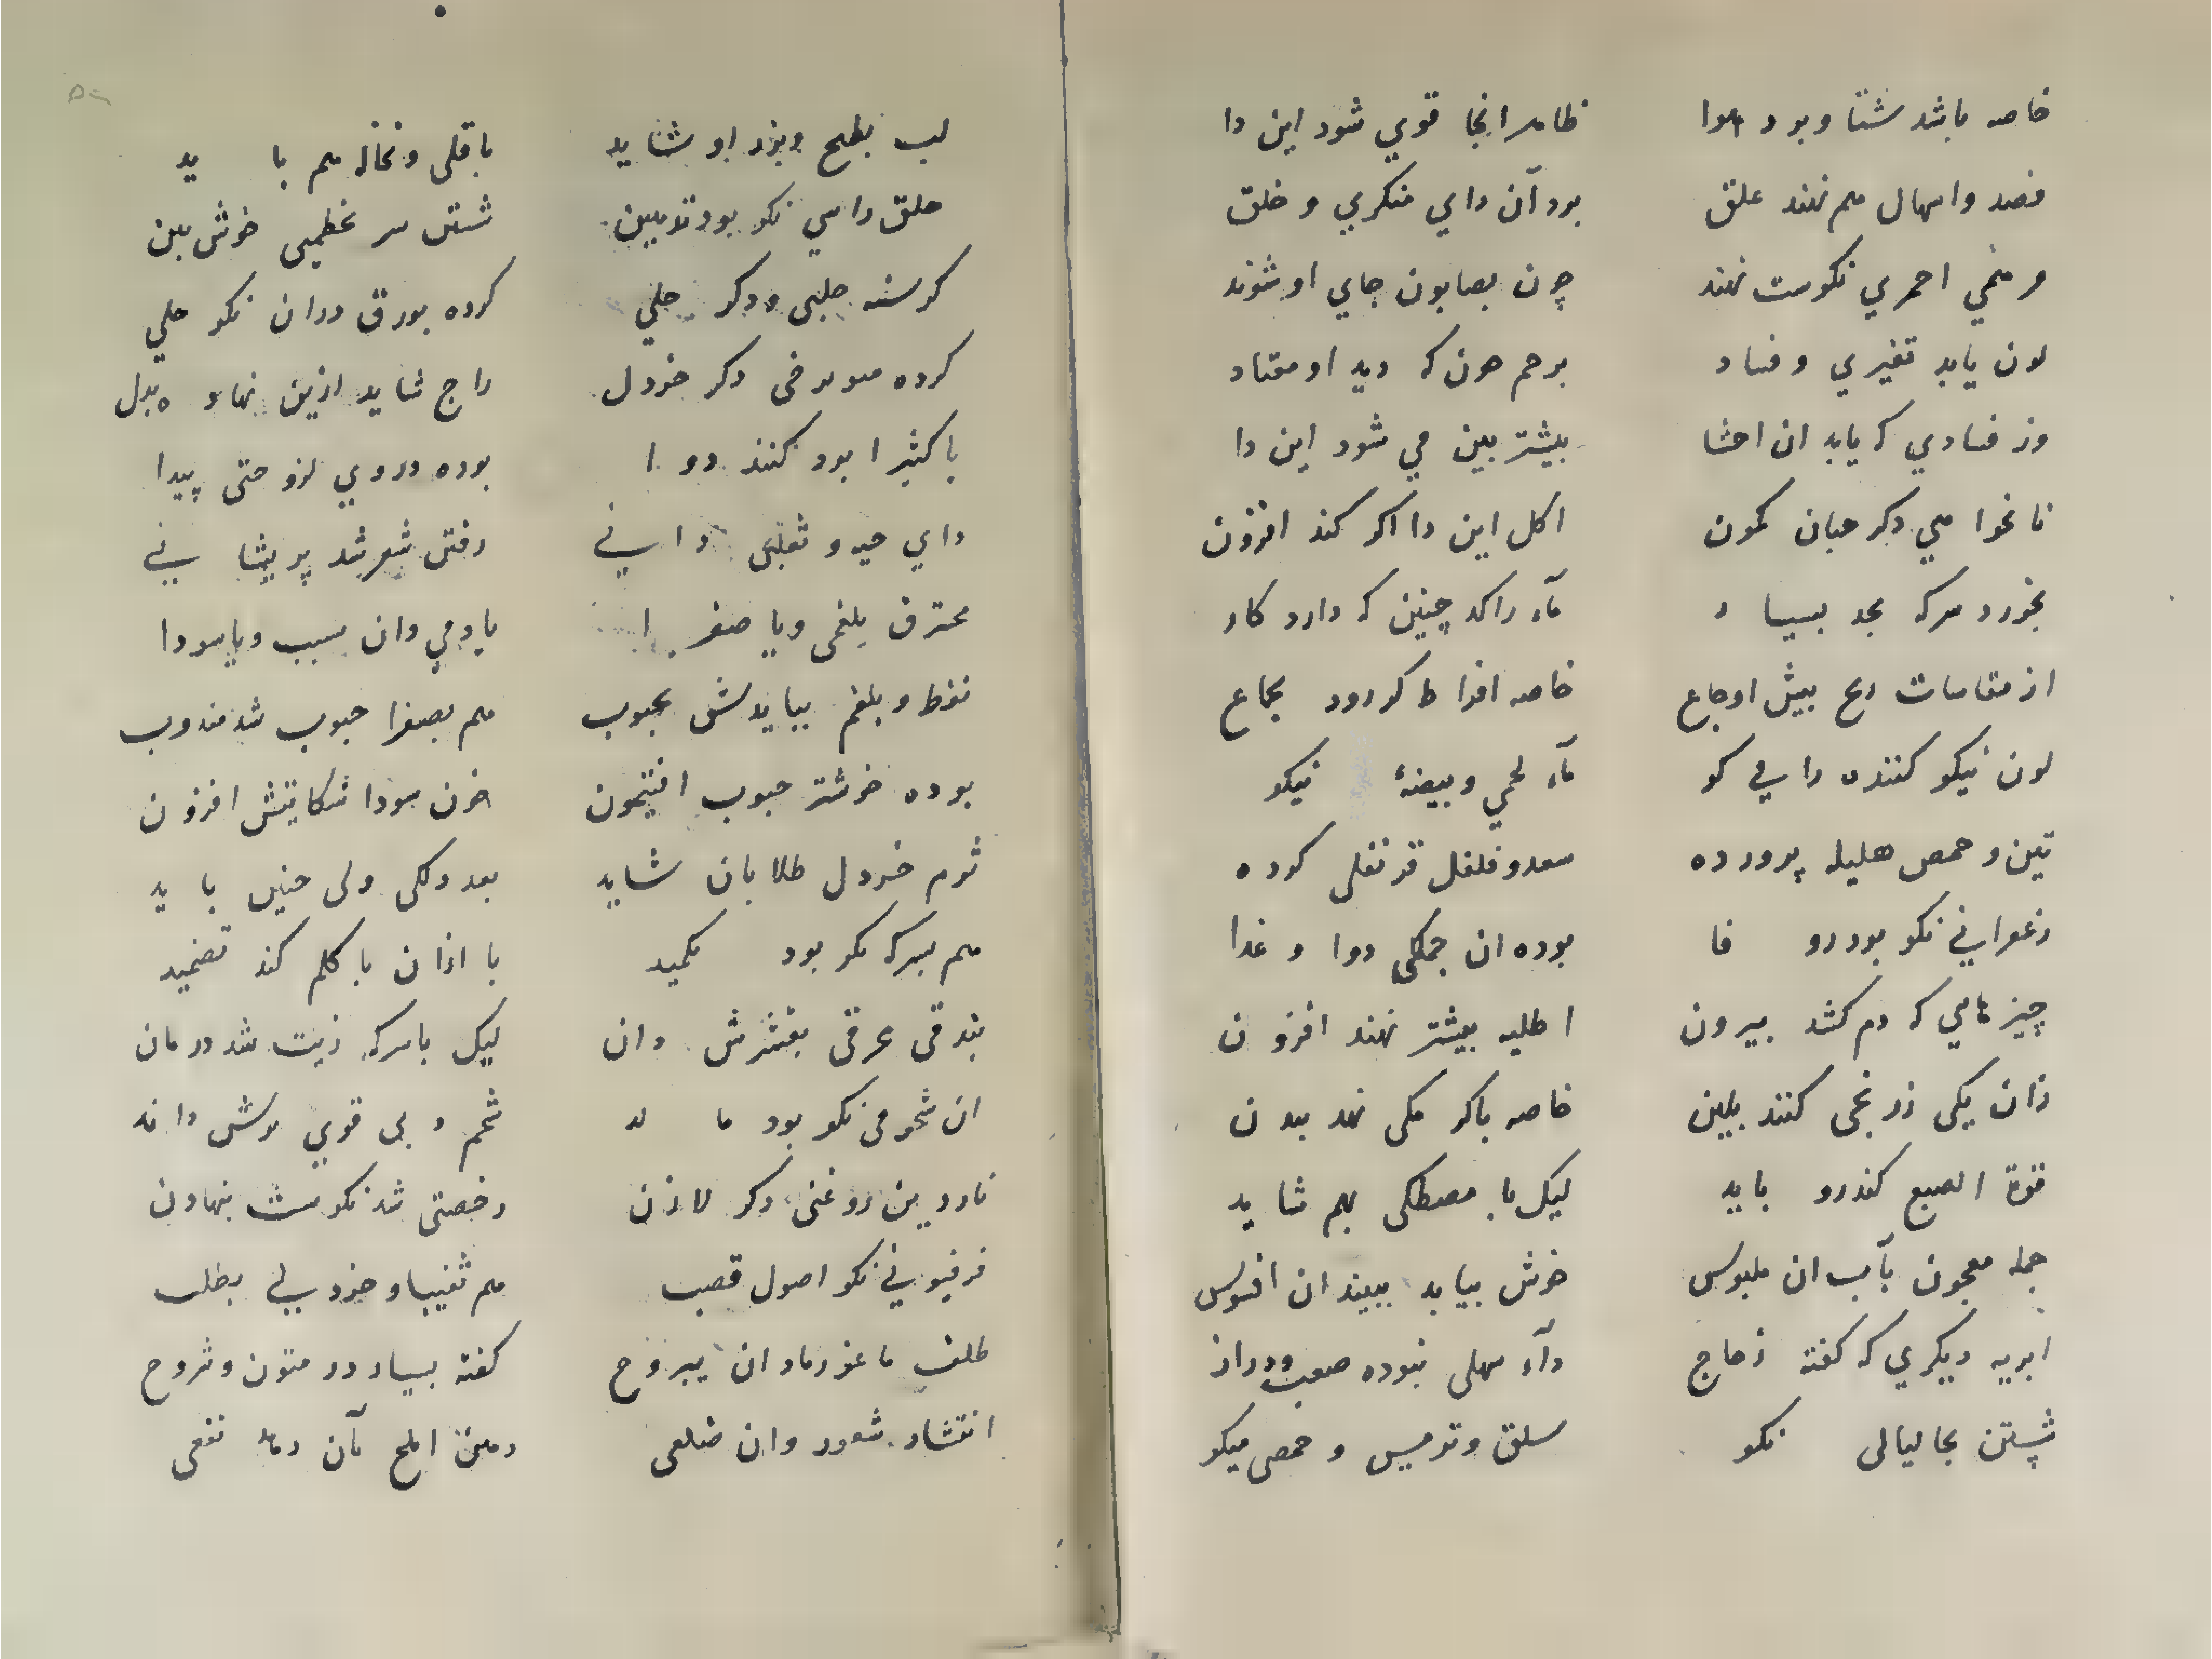 خاصه باشد شتا و بود هوا ظاهرا نجا قوي شود اين دا
فصد و اسهال هم نهند علق بود آن داي منكري و خلق
مرهمي احمري نكوست نهند چون بصابون جاي او شوند
لون يابد تغيري و فساد برحم هون كه ديد او معتاد
وز فسادي كه يابد ان احشا بيشتر بين مي شود اين دا
نانخوا هي دكر حبان كمون اكل اين دا اكر كند افزون
بخورد سركه بحد بسيار مآء راكد چنين كه دارد كار
از مقاسات رنج بيش اوجاع خاصه افراط كر رود بجماع
لون نيكو كننده را پي كو مآء لحمي و بيضهٔ نيكو
تين و حمص هليله پرورده سعد و فلفل قرنفلى كرده
زعفراني نكو بود رو فا بوده ان جمكى دوا و غدا
چيزهايي كه دم كشد بيرون اطليه بيشتر نهند افزون
زان يكى زرنخى كنند بلين خاصه باكر مكى نهد بدن
قوة الصبع كندرو بايد ليك با مصطكى بهم شايد
جمله معجون بآب ان ملبوس خوش بيابد ببيند ان افسوس
ابريه ديكري كه كفته زجاج دآء سهلى نبوده صعب ودراز
شستن بجا ليالى نكو سلق و ترمس و حمص ميكو
لب بطيخ و بزر او شايد باقلى و نخاله هم بايد
حلق راسي نكو بود توبين شستن سر خطميى خوش بين
كرسنه حلبى و دكر حلي كرده بورق دران نكو حلي
كرده مويزخى دكر خردل راج شايد ازين نهاد بدل
با كثيرا بود كنند دوا بوده در روي لزوحتى پيدا
داي حيه و ثعلبى داني رفتن شعر شد پريشاني
محترق بلغمى و يا صفرا يا دمي دان سبب و يا سودا
نفط و بلغم بيايدش بحبوب هم بصفرا حبوب شد مندوب
بوده خوشتر حبوب افتيمون خون سودا شكايتش افزون
ثوم خردل طلا بان شايد بعد دلكى ولى چنين بايد
هم بسركه نكو بود تكميد با اذان با كلم كند تضميد
بندقى عرقى بقشرش دان ليك با سركه زيت شد درمان
ان شحومى نكو بود شحم دبى قوي
ناردين روغنى دكر لاذن رخصتى شد نكوست بنهادن
فرفيوني نكو اصول قصب هم ثفيبا و خردلي بطلب
ظلف ماعز رماد ان يبروح كفته بسيار در متون و شروح
انتشار شعور وان ضلعى دهن املج بآن دهد نفعى